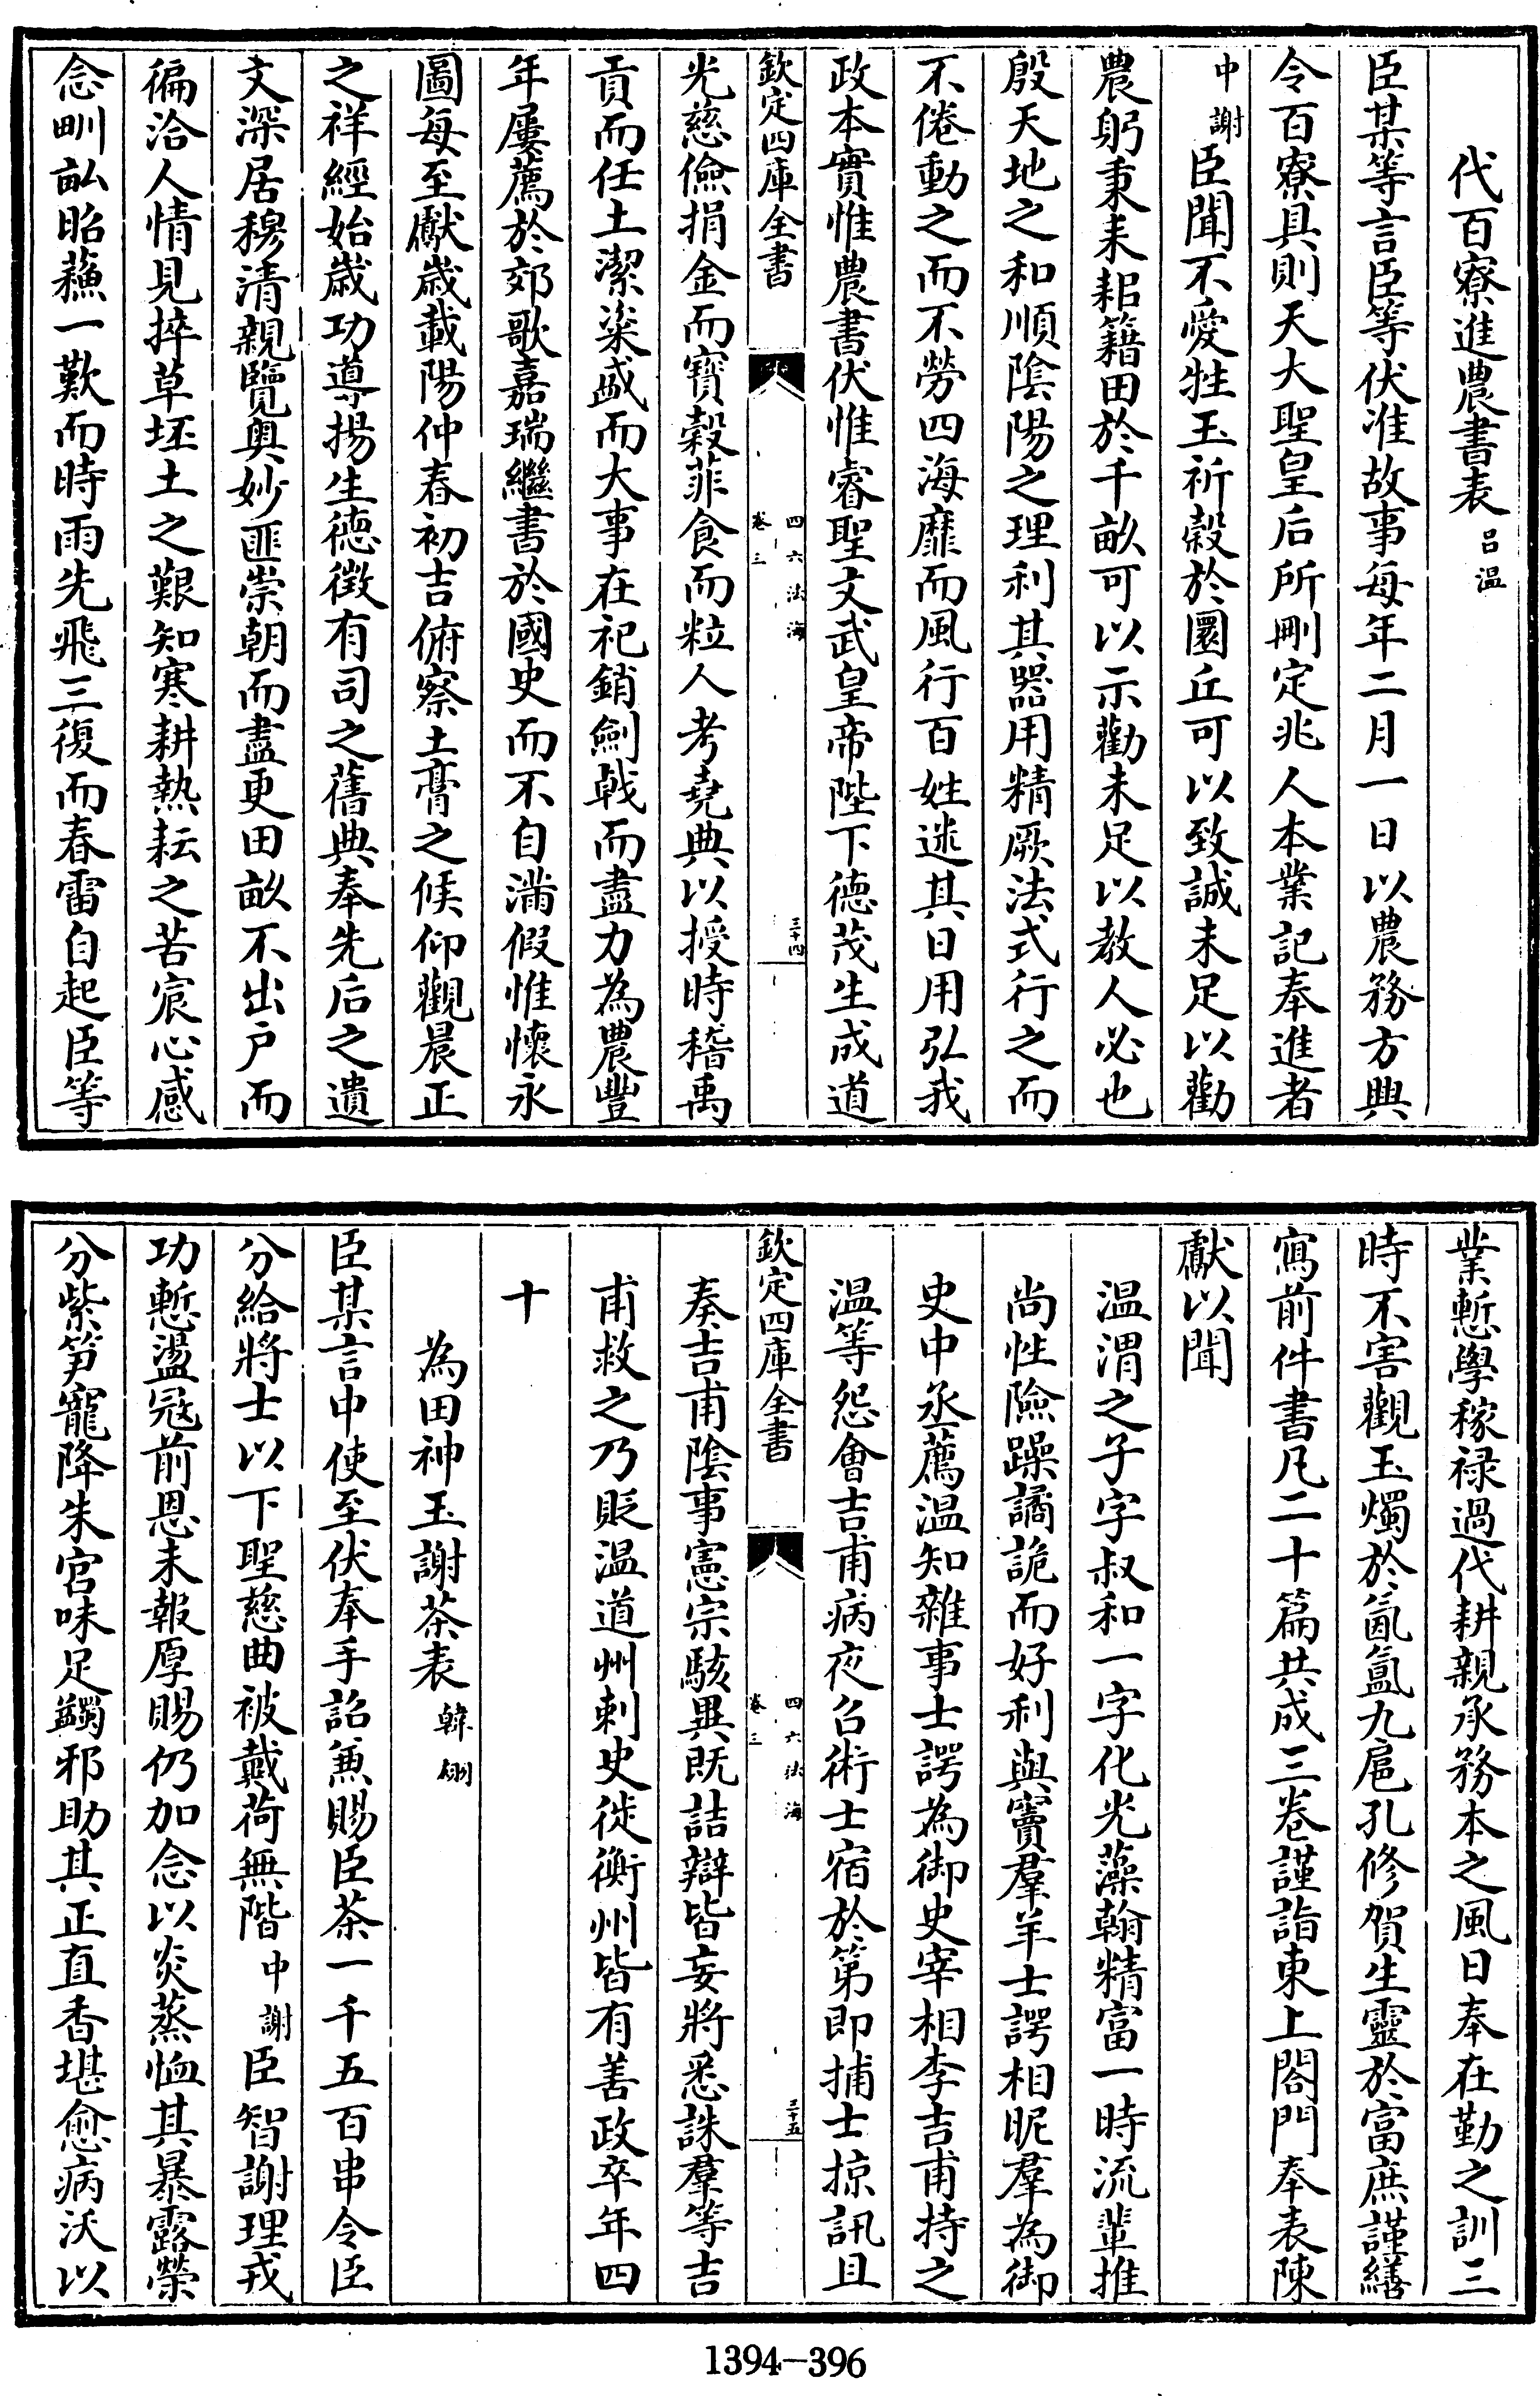 代百寮進農書表 呂温
臣某等言臣等伏准故事每年二月一日以農務方興
令百寮具則天大聖皇后所刪定兆人本業記奉進者
中謝臣聞不愛牲玉祈穀於圜丘可以致誠未足以勸
農躬秉耒耜籍田於千畝可以示勸未足以教人必也
殷天地之和順陰陽之理利其器用精厥法式行之而
不倦動之而不勞四海靡而風行百姓迷其日用弘我
政本實惟農書伏惟睿聖文武皇帝陛下德茂生成道
欽定四庫全書 四六法海 卷三 三十四
光慈儉捐金而寳穀菲食而粒人考堯典以授時稽禹
貢而任土潔粢盛而大事在祀銷劍戟而盡力為農豐
年屢薦於郊歌嘉瑞繼書於國史而不自滿假惟懷永
圖每至獻歲載陽仲春初吉俯察土膏之候仰觀晨正
之祥經始歲功導揚生德徵有司之舊典奉先后之遺
文深居穆清親覽奥妙匪崇朝而盡更田畝不出户而
徧洽人情見捽草坯土之艱知寒耕熱耘之苦宸心感
念甽畝昭蘓一歎而時雨先飛三復而春雷自起臣等
業慙學稼禄過代耕親承務本之風日奉在勤之訓三
時不害觀玉燭於氤氲九扈孔修賀生靈於富庶謹繕
寫前件書凡二十篇共成三卷謹詣東上閤門奉表陳
獻以聞
温渭之子字叔和一字化光藻翰精富一時流輩推
尚性險躁譎詭而好利與竇羣羊士諤相昵羣為御
史中丞薦温知雜事士諤為御史宰相李吉甫持之
温等怨會吉甫病夜召術士宿於第即捕士掠訊且
欽定四庫全書 四六法海 卷三 三十五
奏吉甫陰事憲宗駭異既詰辯皆妄將悉誅羣等吉
甫救之乃貶温道州刺史徙衡州皆有善政卒年四
十
為田神玉謝茶表 韓翃
臣某言中使至伏奉手詔兼賜臣茶一千五百串令臣
分給將士以下聖慈曲被戴荷無階中謝臣智謝理戎
功慙盪冦前恩未報厚賜仍加念以炎蒸恤其暴露榮
分紫笋寵降朱宫味足蠲邪助其正直香堪愈病沃以
1394-396